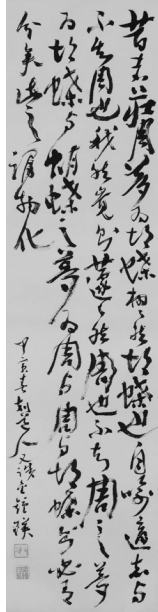 昔者莊周夢為胡蝶栩栩然胡蝶也自喻適志与
不知周也俄然覺則蘧蘧然周也不知周之夢
為胡蝶与蝴蝶之夢為周与周与胡蝶則必有
分矣此之謂物化